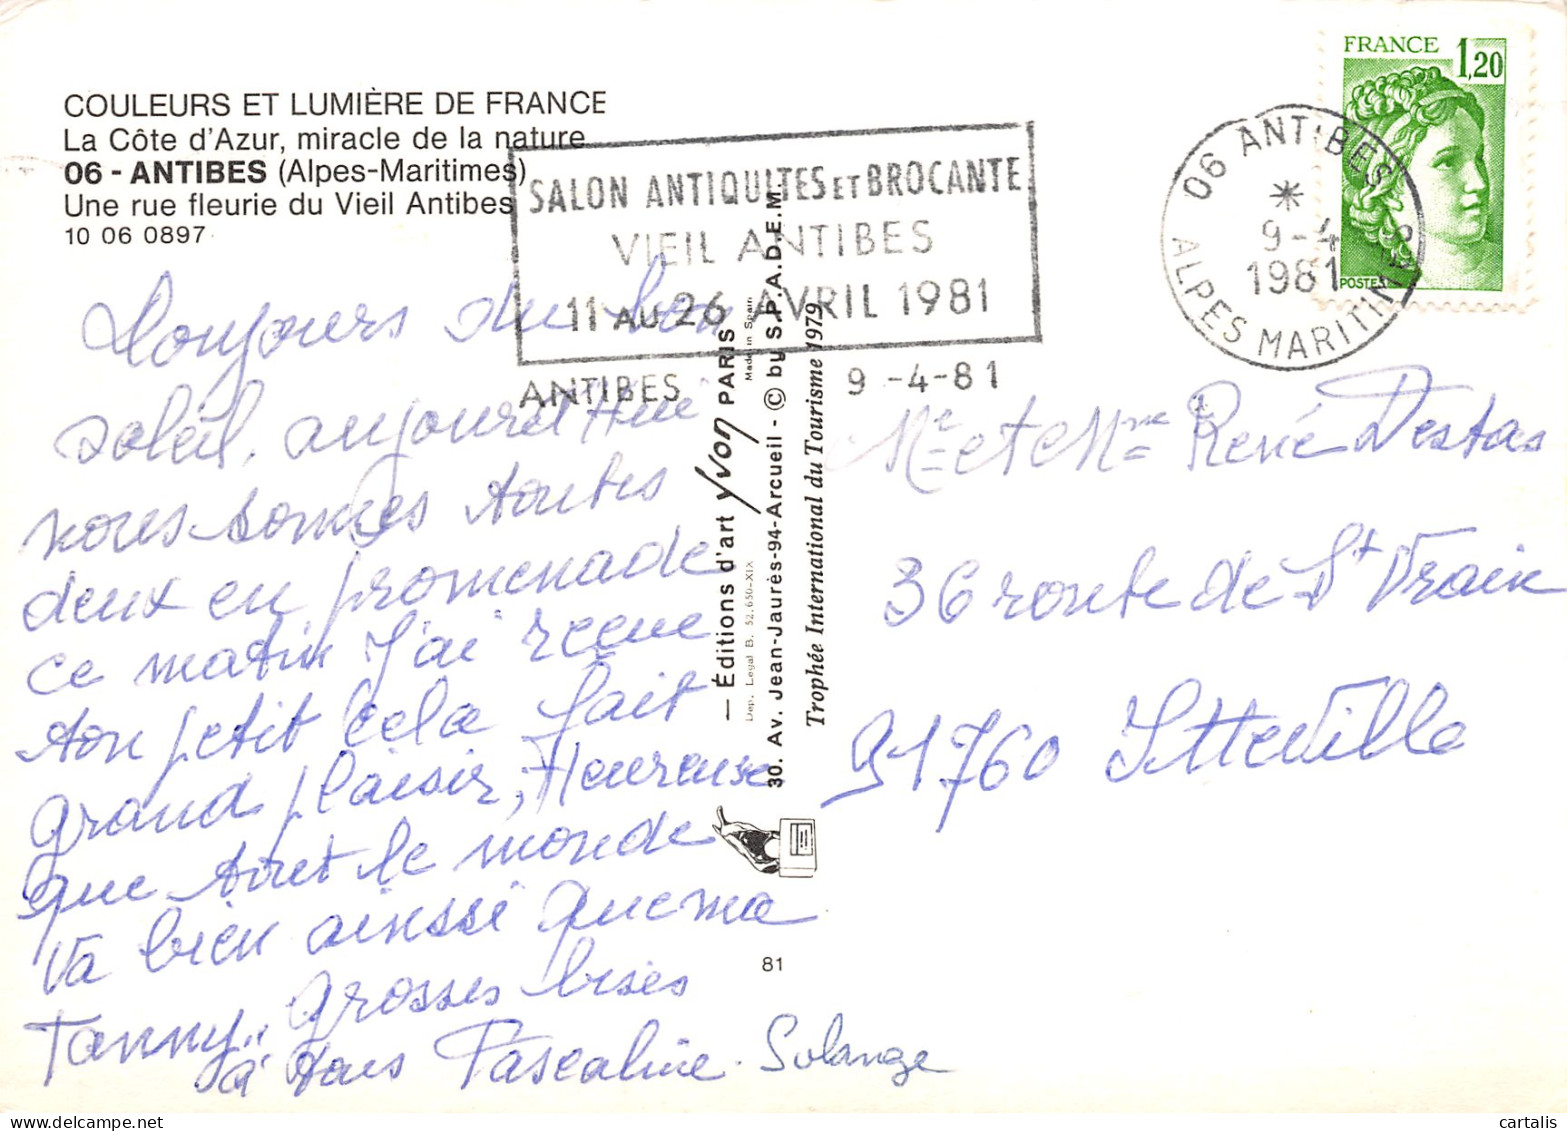 COULEURS ET LUMIÈRE DE FRANCE
La Côte d'Azur, miracle de la nature
06 - ANTIBES (Alpes-Maritimes)
Une rue fleurie du Vieil Antibes
10 06 0897
SALON ANTIQUITES ET BROCANTE
VIEIL ANTIBES
11 AU 26 AVRIL 1981
ANTIBES 9 -4-81
FRANCE 1,20
POSTES
06 ANTIBES
9-4
1981
ALPES MARITIMES
Toujours du bon
soleil, aujourd'hui
nous sommes toutes
deux en promenade
ce matin j'ai reçue
ton petit cela fait
grand plaisir, Heureuse
que tout le monde
va bien ainssi que ma
Fanny, grosses bises
à tous Pascaline. Solange
— Éditions d'art yvon PARIS
Made in Spain
Dep. Legal B. 52.650-XIX
30. Av. Jean-Jaurès-94-Arcueil - © by S.P.A.D.E.M.
Trophée International du Tourisme 1979
81
Mr et Mme René Destas
36 route de St Vrain
91760 Itteville
cartalis